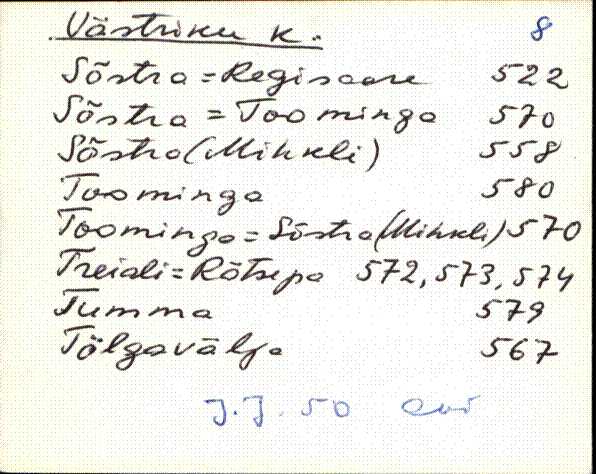 Västriku k. 8
Sõstra = Regisaare 522
Sõstra = Toominga 570
Sõstra (Mihkli) 558
Toominga 580
Toominga = Sõstra (Mihkli) 570
Treiali = Rätsepa 572, 573, 574
Tumma 579
Tõlgavälja 567
J.J. 50